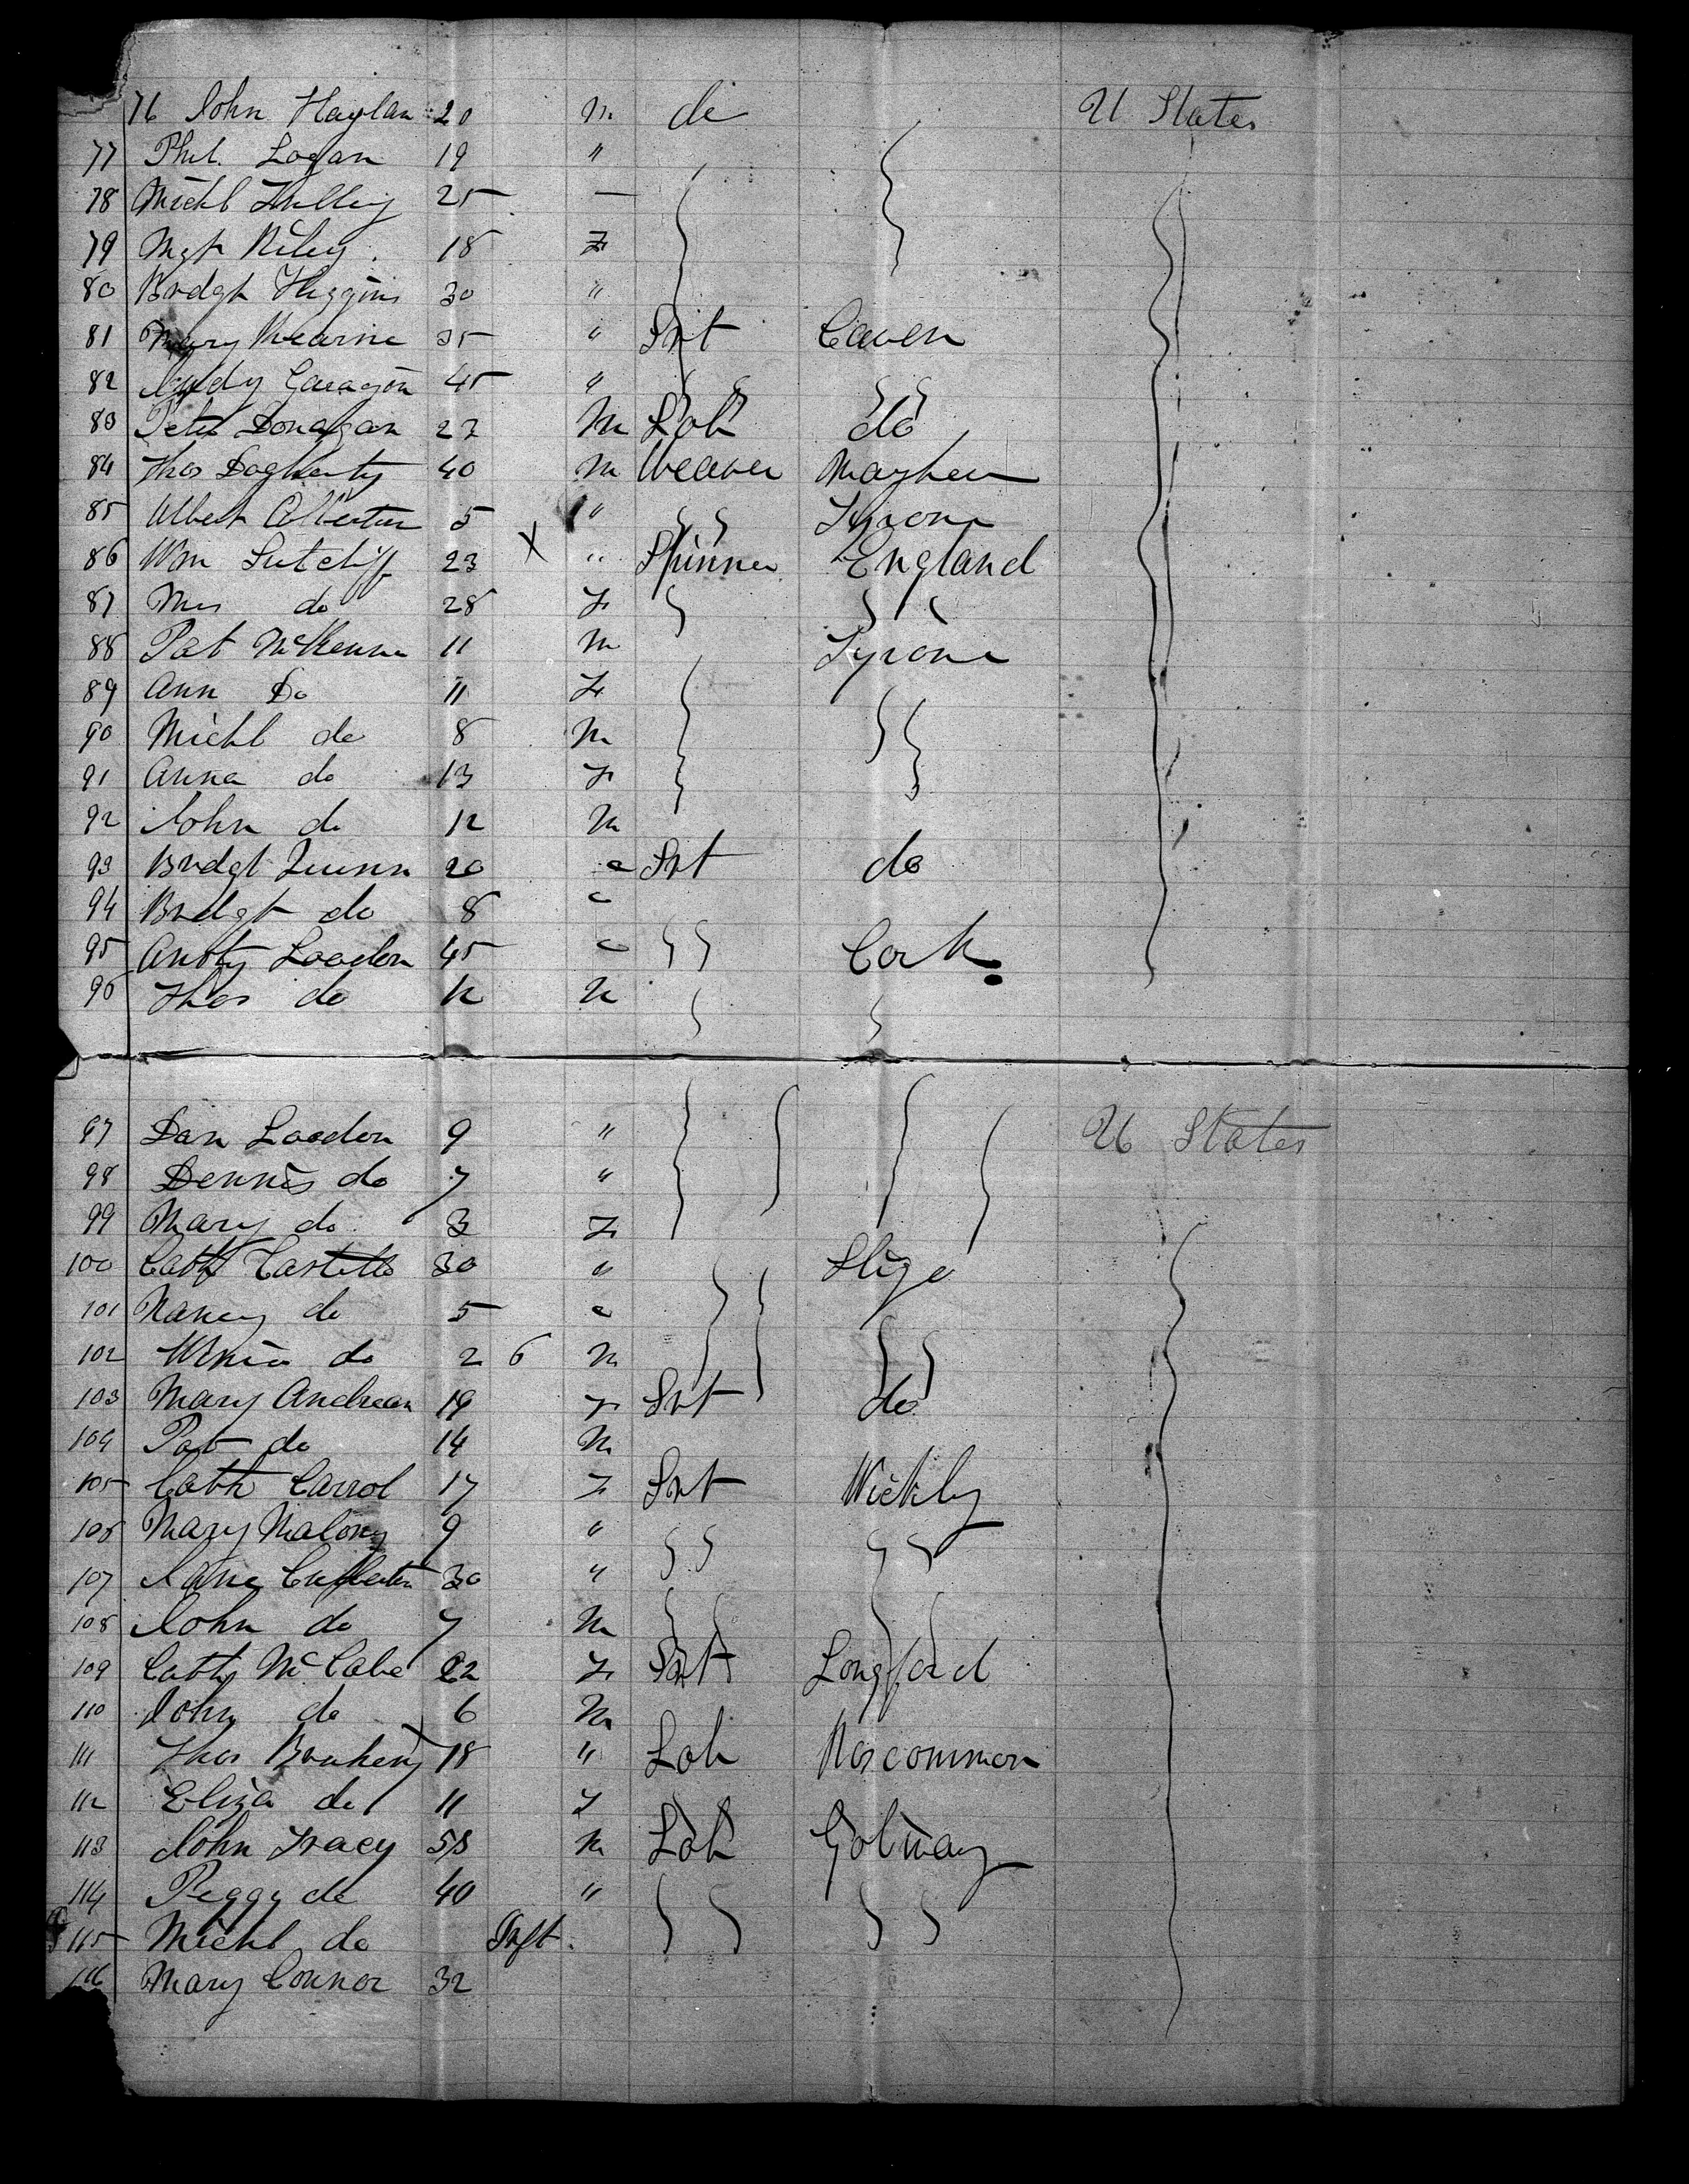 76 John Haylan 20 m do U States
77 Phil. Logan 19 "
78 Michl 25 —
79 Mgt Riley 18 F
80 Brdgt Higgins 30 "
81 Mary Kearnie 35 " Svt Caven
82 Judy 45 "
83 Peter Donagan 27 M Lab do
84 Thos Dogherty 40 M Weaver
85 Albert 5 " Tyrone
86 Wm Sutcliff 23 X " Spinner England
87 Mrs do 28 F
88 Pat McKenna 11 m Tyrone
89 Ann Do 11 F
90 Michl do 8 M
91 Anna do 13 F
92 John do 12 M
93 Brdgt Quinn 20 " Svt do
94 Brdgt do 8 "
95 Loodon 45 " Cork
96 Thos do 12 M
97 Dan Loodon 9 " U States
98 Dennis do 7 "
99 Mary do 3 F
100 Cath Castello 30 " Sligo
101 Nancy do 5 "
102 do 2 6 M
103 Mary Andrean 19 F Svt do
104 Pat do 14 M
105 Cath Carrol 17 F Svt
106 Mary Malony 9 "
107 Jane 30 "
108 John do 7 M
109 Cathy McCabe 22 F Svt Longford
110 John do 6 M
111 Thos 18 " Lab Roscommon
112 Eliza do 11 F
113 John Tracy 58 M Lab Golway
114 Peggy do 40 "
115 Michl do Inft.
116 Mary Connor 32